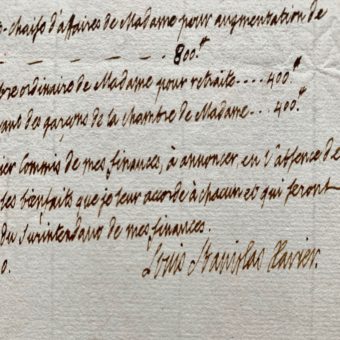 -Chaise d'affaires de Madame pour augmentation de
800.tt
bre ordinaire de Madame pour retraite .... 400.tt
des garçons de la Chambre de Madame ... 400.tt
ier Commis de mes finances, à annoncer en l'absence de
les bienfaits que je leur accorde à chacun et qui seront
du Surintendant de mes finances.
0.
Louis Stanislas Xavier.